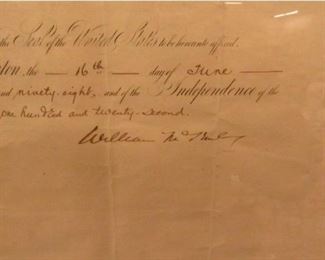 the Seal of the United States to be hereunto affixed.
ton, the 16th day of June
nd ninety-eight, and of the Independence of the
one hundred and twenty-second.
William McKinley